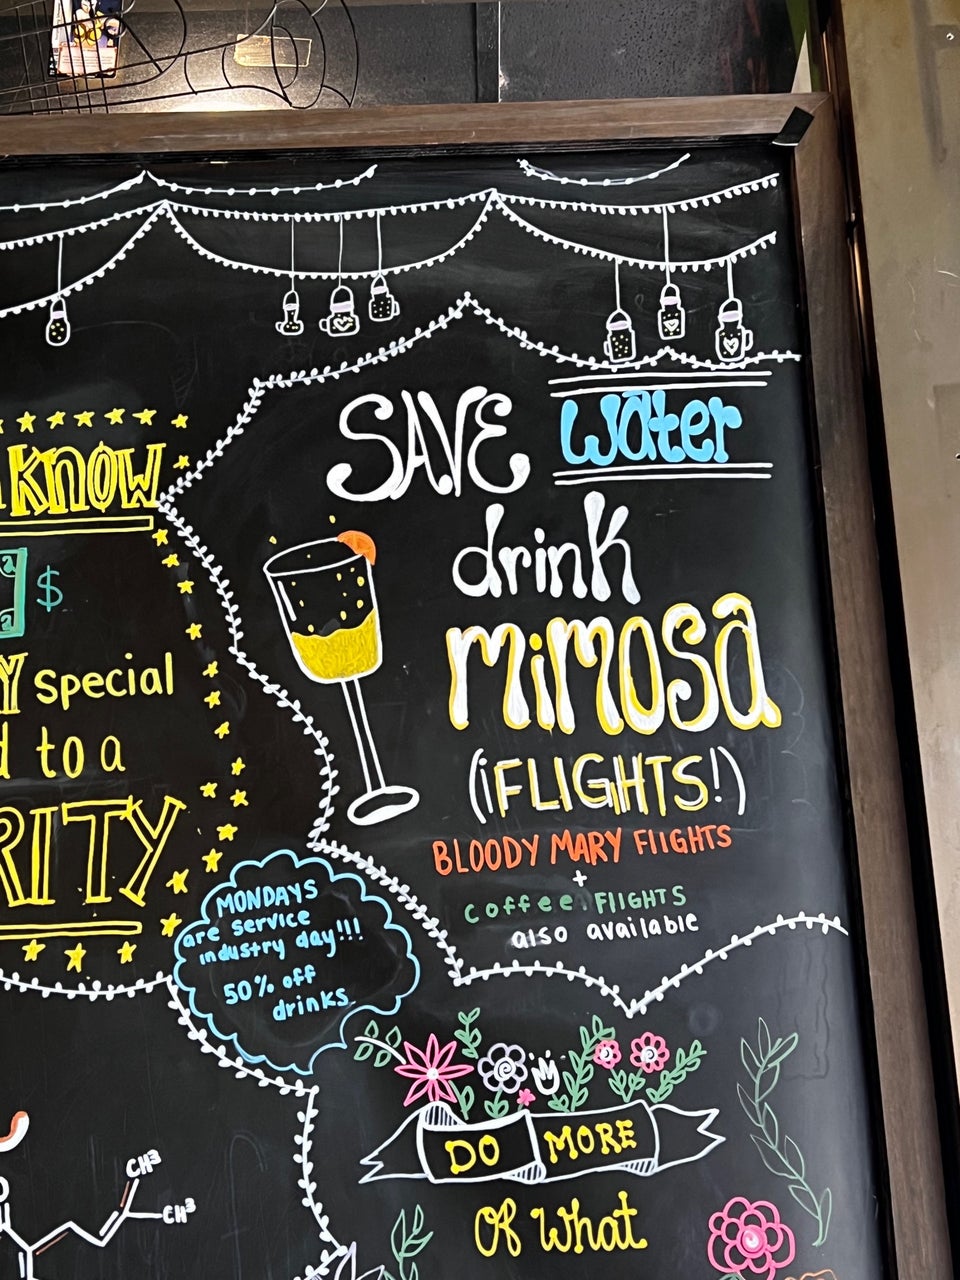 KNOW
$
Y special
d to a
RITY
SAVE water
drink
mimosa
(¡FLIGHTS!)
BLOODY MARY FlIGHTS
+
coffee FlIGHTS
also available
MONDAYS
are service
industry day!!!
50% off
drinks
DO MORE
Of What
CH3
CH3